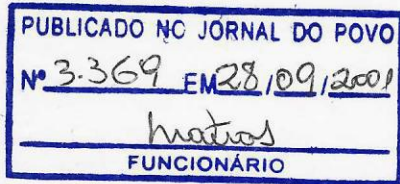 PUBLICADO NO JORNAL DO POVO
Nº 3.369 EM 28/09/2001
Matias
FUNCIONÁRIO